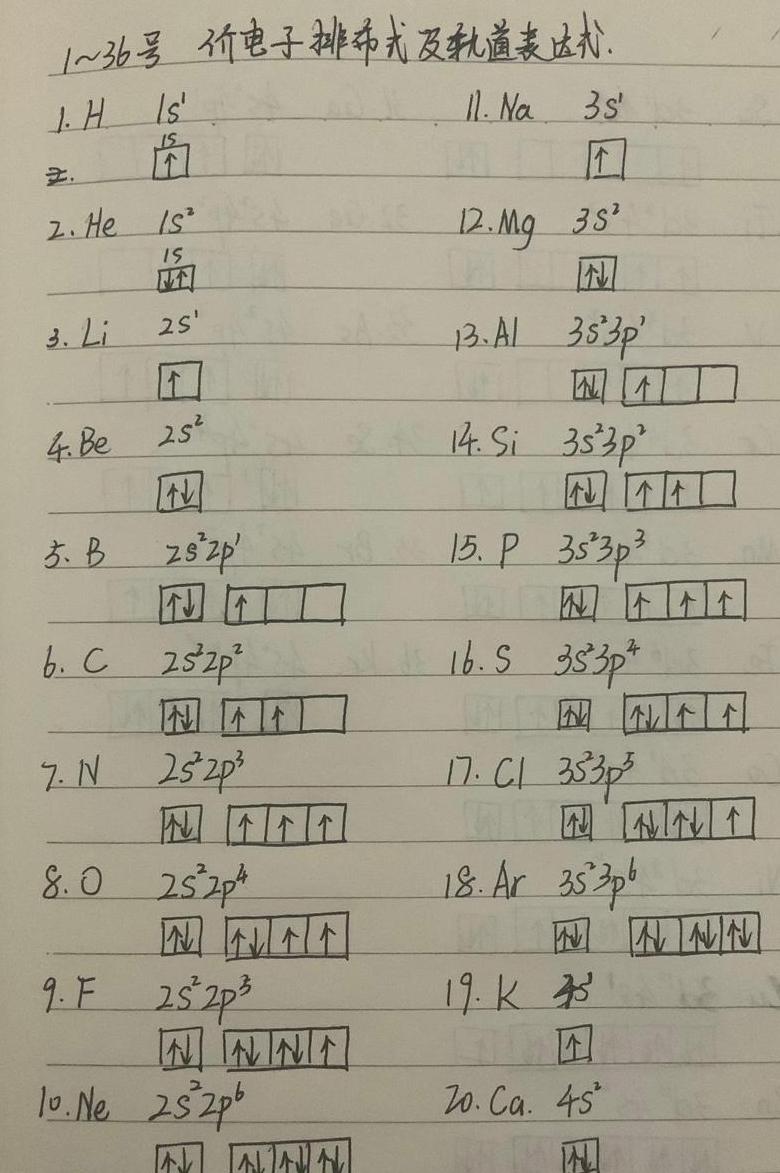 1~36号 价电子排布式及轨道表达式.
1. H 1s¹
1s
2. He 1s²
1s
3. Li 2s¹
4. Be 2s²
5. B 2s²2p¹
6. C 2s²2p²
7. N 2s²2p³
8. O 2s²2p⁴
9. F 2s²2p⁵
10. Ne 2s²2p⁶
11. Na 3s¹
12. Mg 3s²
13. Al 3s²3p¹
14. Si 3s²3p²
15. P 3s²3p³
16. S 3s²3p⁴
17. Cl 3s²3p⁵
18. Ar 3s²3p⁶
19. K 4s¹
20. Ca. 4s²